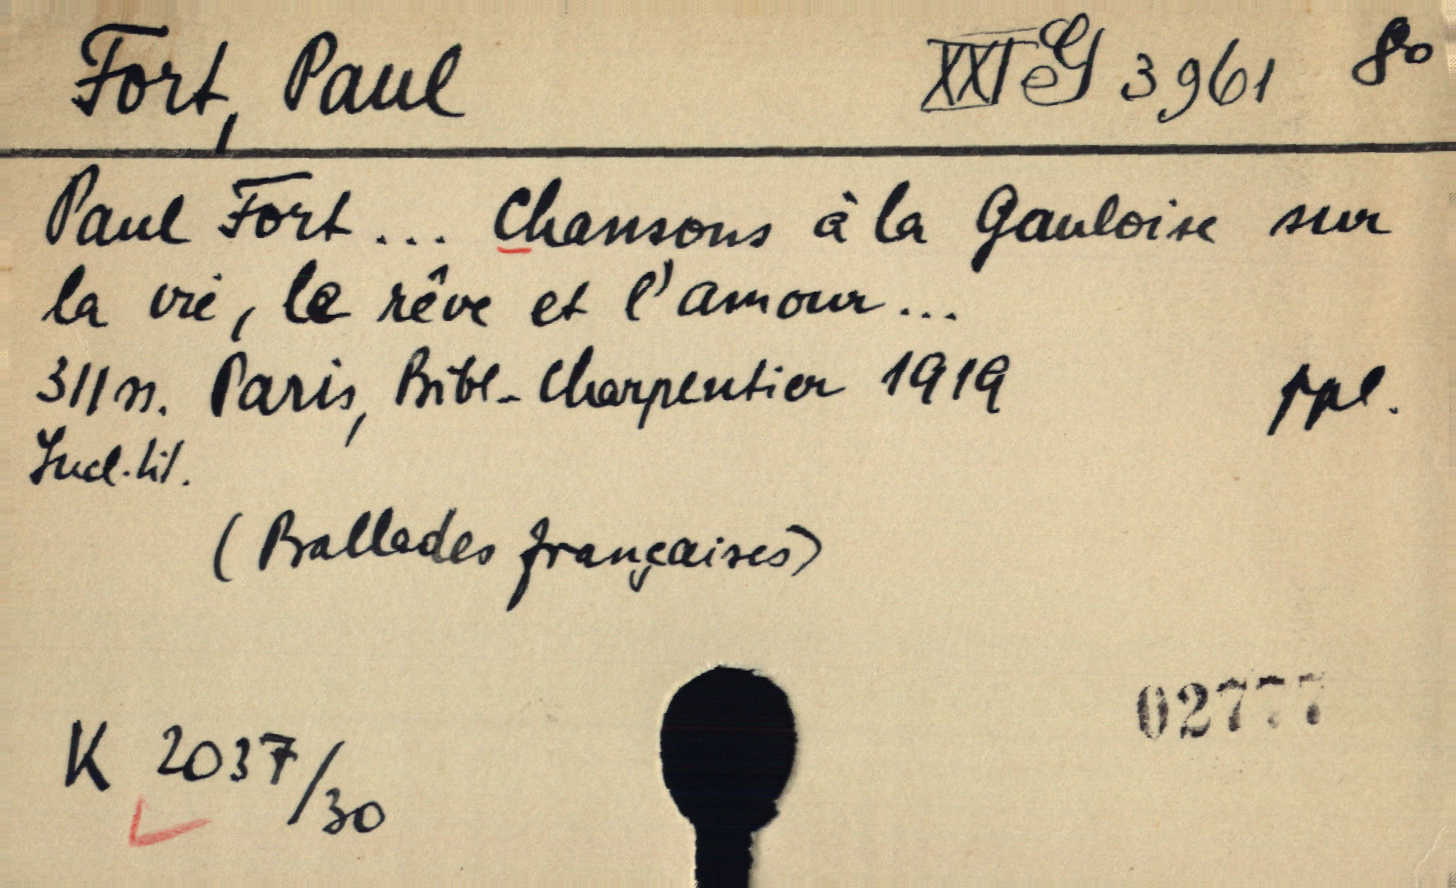 Fort, Paul XXI G 3961 8°
Paul Fort... Chansons à la Gauloise sur
la vie, le rêve et l'amour...
311 s. Paris, Bibl.-Charpentier 1919 ppl.
(Ballades françaises)
02777
K 2037/30